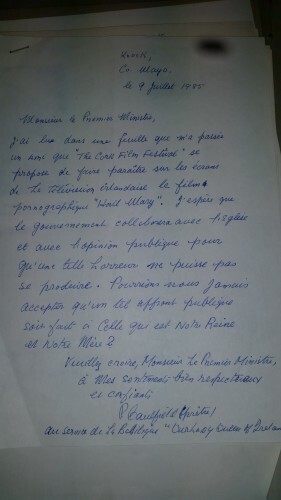 Knock,
Co. Mayo.
le 9 Juillet 1985
Monsieur le Premier Ministre,
J'ai lu dans une feuille que m'a passée
un ami que "The Cork Film Festival" se
propose de faire paraître sur les écrans
de la télévision irlandaise le film
pornographique "Hail Mary". J'espère que
le gouvernement collaborera avec l'église
et avec l'opinion publique pour
qu'une telle horreur ne puisse pas
se produire. Pourrions nous jamais
accepter qu'un tel affront publique
soit fait à Celle qui est Notre Reine
et Notre Mère?
Veuillez croire, Monsieur Le Premier Ministre,
à mes sentiments bien respectueux
et confiants
P Caulfield
au service de La Basilique "Our Lady Queen of Ireland